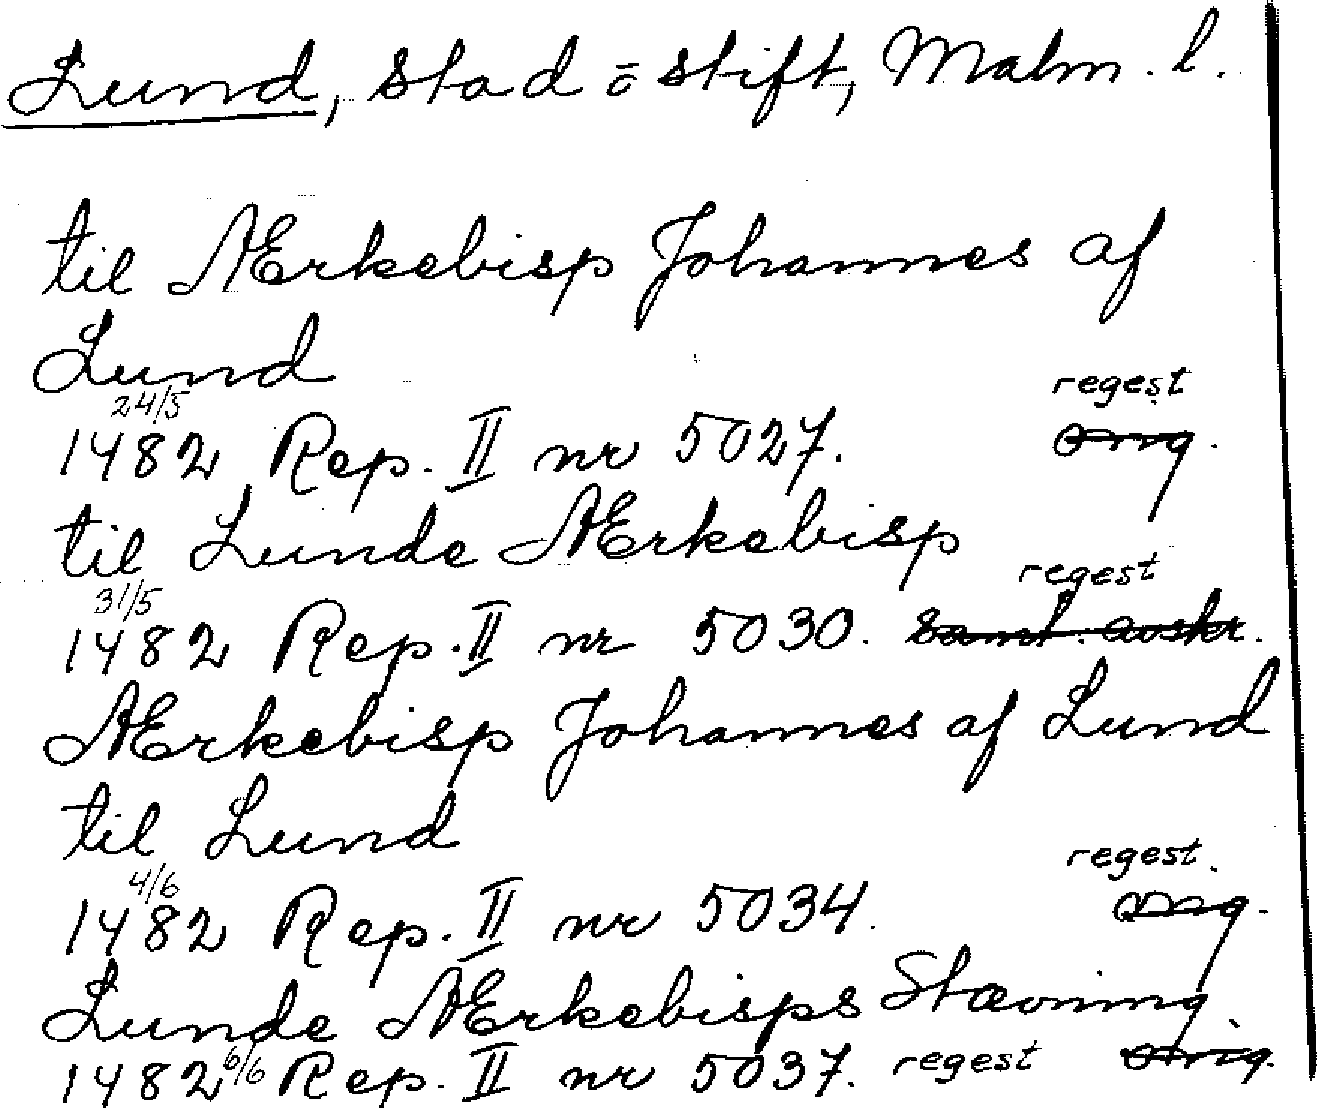 Lund, stad ō stift, Malm. l.
til Ærkebisp Johannes af
Lund
24/5 regest
1482 Rep. II nr 5027. orig.
til Lunde Ærkebisp
31/5 regest
1482 Rep. II nr 5030. saml. avskr.
Ærkebisp Johannes af Lund
til Lund
4/6 regest.
1482 Rep. II nr 5034. orig.
Lunde Ærkebisps Stævning.
1482 6/6 Rep. II nr 5037. regest orig.